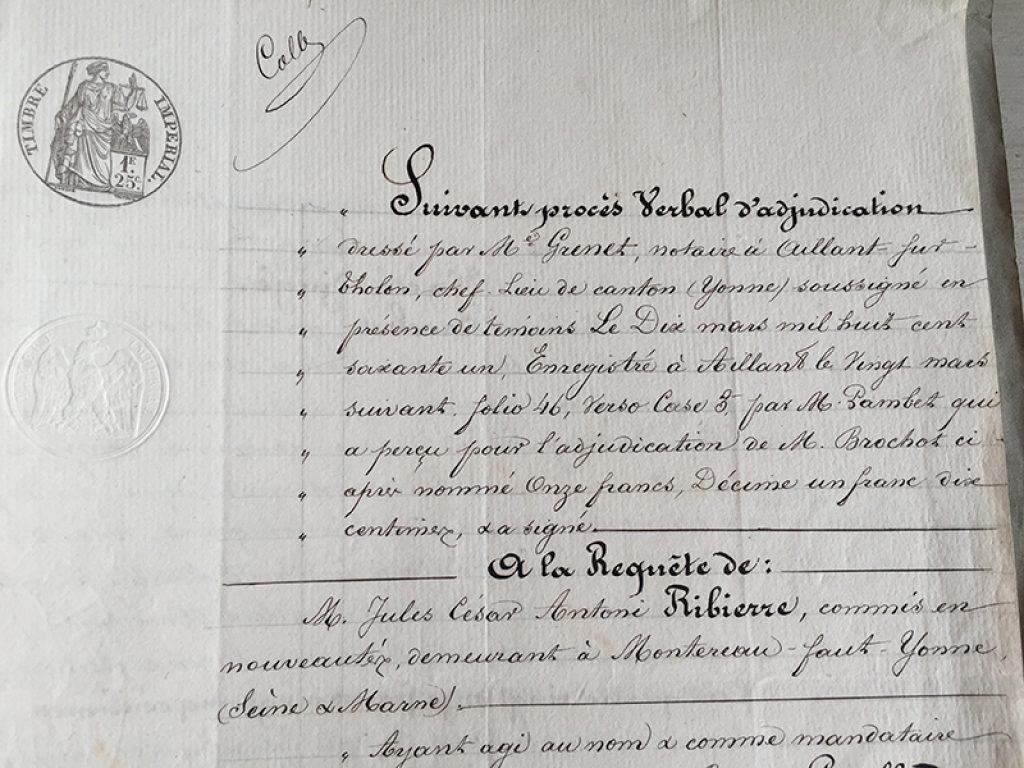 TIMBRE IMPERIAL.
1F
25c
" Suivant procès Verbal d'adjudication
" dressé par Me Grenet, notaire à Aillant-sur-
" Tholon, chef-Lieu de canton (Yonne) soussigné en
" présence de temoins Le Dix mars mil huit cent
" soixante un, Enregistré à Aillant le Vingt mars
" suivant folio 46, Verso Case par M. Pambet qui
" a perçu pour l'adjudication de M. Brochot ci-
" après nommé Onze francs, Décime un franc dix
" centimes, & a signé.
A la Requête de:
M. Jules César Antoni Ribierre, commis en
nouveautés, demeurant à Montereau-faut-Yonne,
(Seine & Marne).
" Ayant agi au nom & comme mandataire